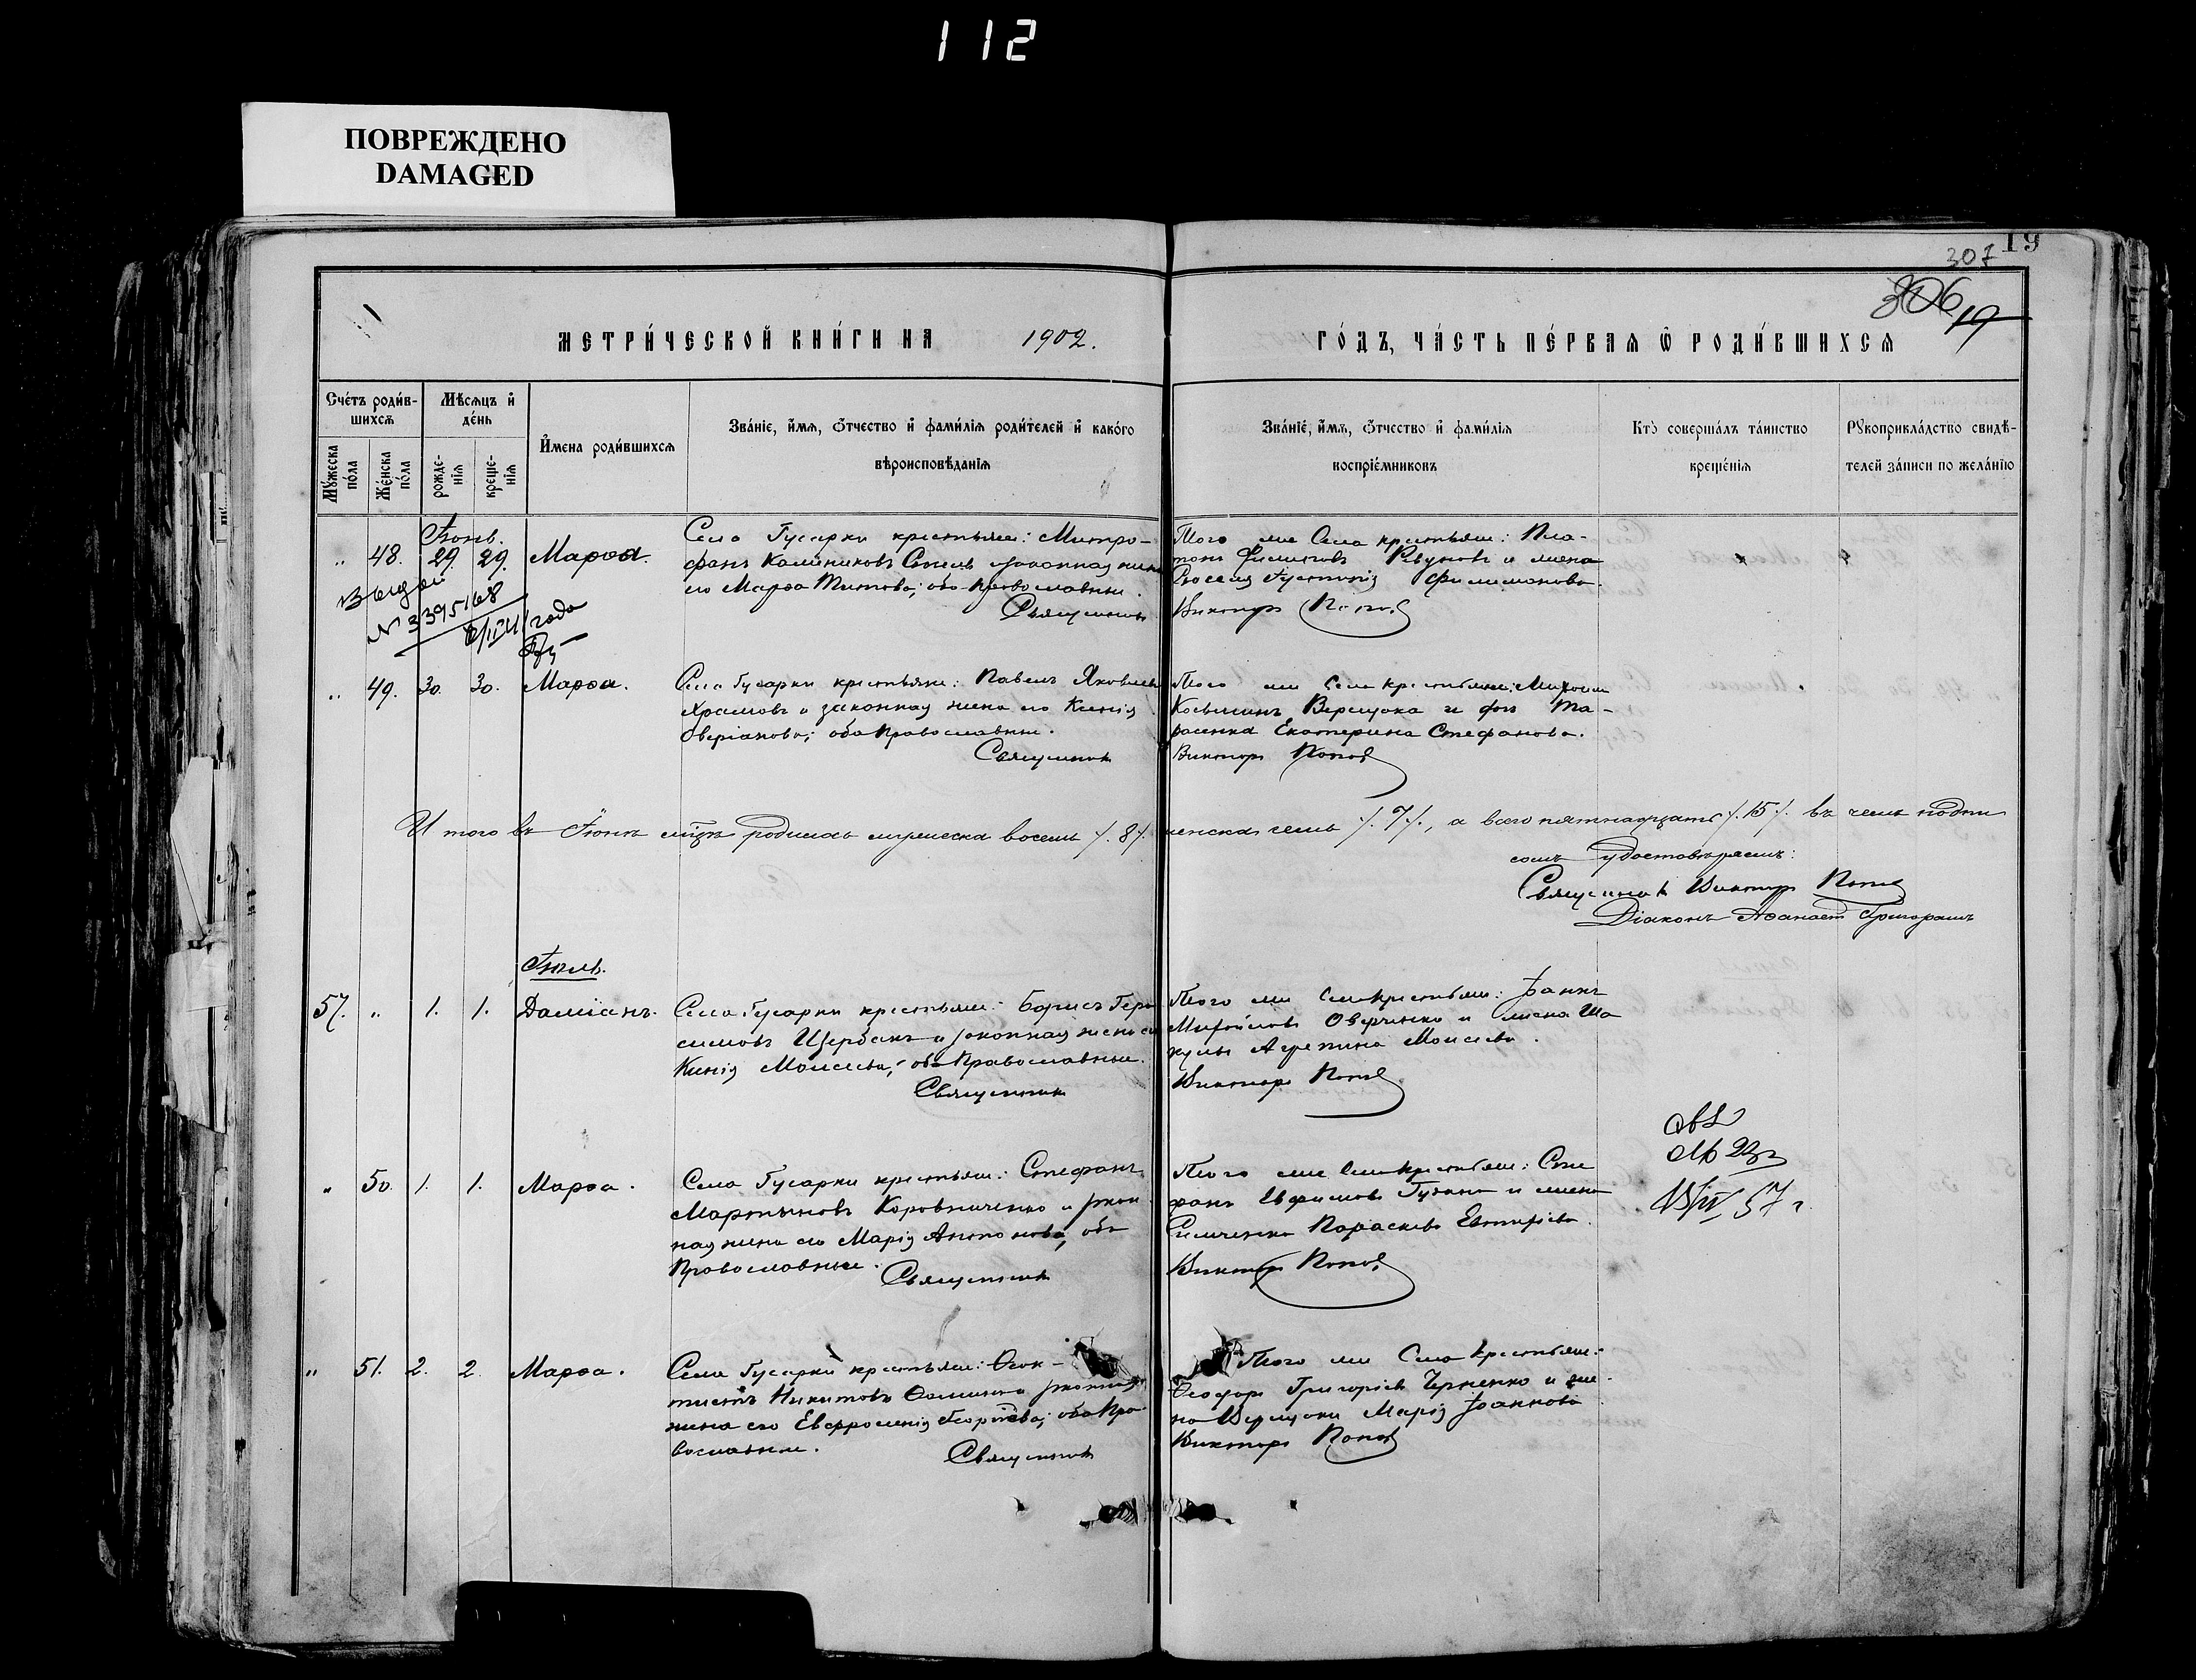 112
ПОВРЕЖДЕНО
DAMAGED
19
307
306
19
МЕТРИ́ЧЕСКОЙ КНИ́ГИ НА 1902. ГО́ДЪ, ЧА́СТЬ ПЕ́РВАЯ Ѡ РОДИ́ВШИХСЯ
Сче́тъ роди́в-
шихся
Мѣсяцъ и
де́нь
Му́жеска
по́ла
Же́нска
по́ла
рожде-
нія
креще-
нія
И́мена роди́вшихся
Зва́ніе, и́мя, о́тчество и фами́лія роди́телей и како́го
вѣроисповѣ́данія
Зва́ніе, и́мя, о́тчество и фами́лія
воспріе́мниковъ
Кто̀ соверша́лъ та́инство
креще́нія
Рукоприкла́дство свидѣ́-
телей за́писи по жела́нію
Іюнь.
" 48. 29. 29. Марѳа.
Села Гусарки крестьяне: Митро-
фанъ Калиниковъ законная жена
его Марѳа Титова; оба православные.
Священникъ
Того же Села крестьяне: Пла-
тонъ Ревуновъ и жена
Филимонова.
Викторъ Поповъ
Выдан
№ 3395168
года
" 49. 30. 30. Марѳа.
Села Гусарки крестьяне: Павелъ Яковлевъ
Храмовъ и законная жена его Ксенія
Аверіанова; оба Православные.
Священникъ
Того же Села крестьяне: Михаилъ
Косьминъ Верещака и Та-
расенка Екатерина Стефанова.
Викторъ Поповъ
Итого въ Іюнѣ м-цѣ родилось мужеска восемь /.8/. женска семь /.7/., а всего пятнадцать /.15/. въ чемъ подпи
сомъ удостовѣряемъ:
Священникъ Викторъ Поповъ
Діаконъ Аѳанасій Григорашъ
Іюль.
57. " 1. 1. Даміанъ.
Села Гусарки крестьяне: Борисъ Гера
симовъ Щербакъ и законная жена его
Ксенія Моисеева; оба Православные.
Священникъ
Того же Села крестьяне: Іоаннъ
Михайловъ Оверченко и жена Ша
кулы Агрепина Моисеева.
Викторъ Поповъ
" 50. 1. 1. Марѳа.
Села Гусарки крестьяне: Стефанъ
Мартыновъ Коровниченко и закон
ная жена его Марія Антонова, оба
Православные.
Священникъ
Того же Села крестьяне: Сте
фанъ Евфимовъ и жена
Параскева
Викторъ Поповъ
" 51. 2. 2. Марѳа.
Села Гусарки крестьяне: Ѳеок-
тистъ Никитовъ законная
жена его Евфросинія Георгіева; оба Пра-
вославные.
Священникъ
Того же Села крестьяне:
Ѳеодоръ Григоріевъ Черненко и же-
на Верещаки Марія Іоаннова
Викторъ Поповъ